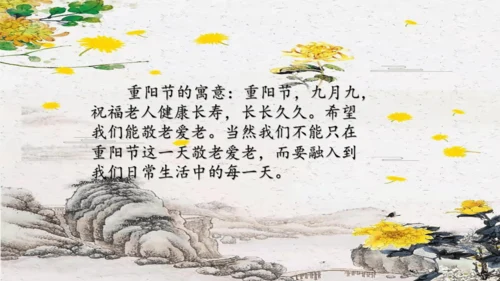 重阳节的寓意：重阳节，九月九，
祝福老人健康长寿，长长久久。希望
我们能敬老爱老。当然我们不能只在
重阳节这一天敬老爱老，而要融入到
我们日常生活中的每一天。